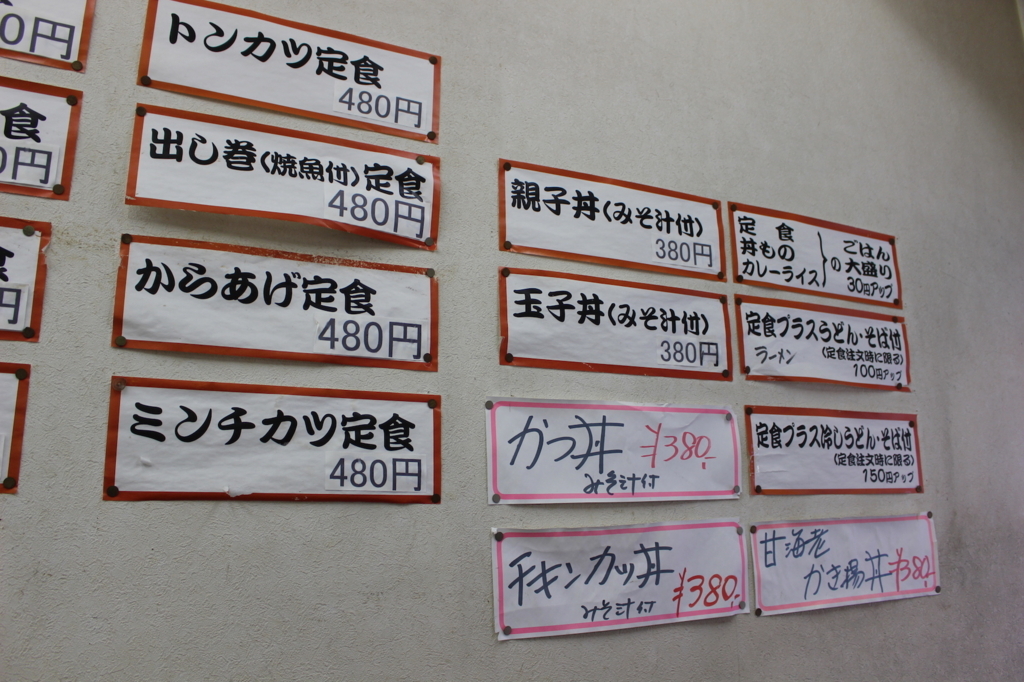 0円
食
0円
食
円
トンカツ定食
480円
出し巻(焼魚付)定食
480円
からあげ定食
480円
ミンチカツ定食
480円
親子丼(みそ汁付)
380円
玉子丼(みそ汁付)
380円
かつ丼 ¥380.-
みそ汁付
チキンカツ丼 ¥380.-
みそ汁付
定食
丼もの
カレーライス
}の
ごはん
大盛り
30円アップ
定食プラスうどん・そば付
ラーメン
(定食注文時に限る)
100円アップ
定食プラス冷しうどん・そば付
(定食注文時に限る)
150円アップ
甘海老
かき揚丼 ¥380.-